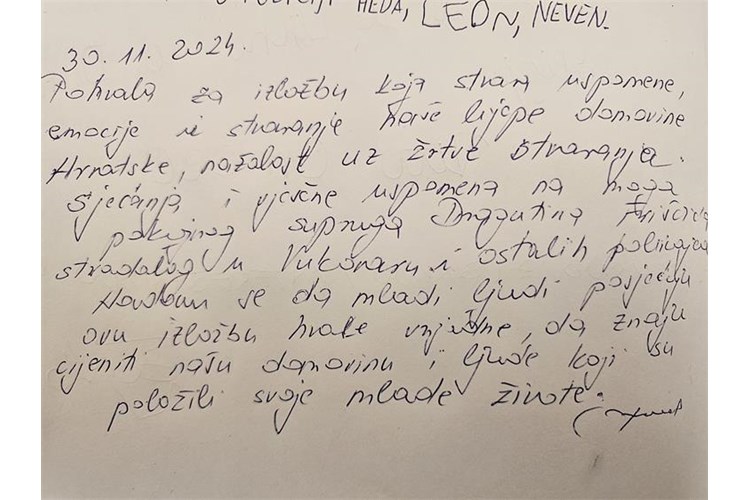 HEDA, LEON, NEVEN.
30. 11. 2024.
Pohvala za izložbu koja stvara uspomene,
emocije u stvaranje naše lijepe domovine
Hrvatske, nažalost uz žrtve stvaranja.
Sjećanja i vječne uspomena na moga
pokojnog supruga Dragutina
stradalog u Vukovaru i ostalih policajca
Nadam se da mladi ljudi posjećuju
ovu izložbu hvale vrijedne, da znaju
cijeniti našu domovinu i ljude koji su
položili svoje mlade živote.